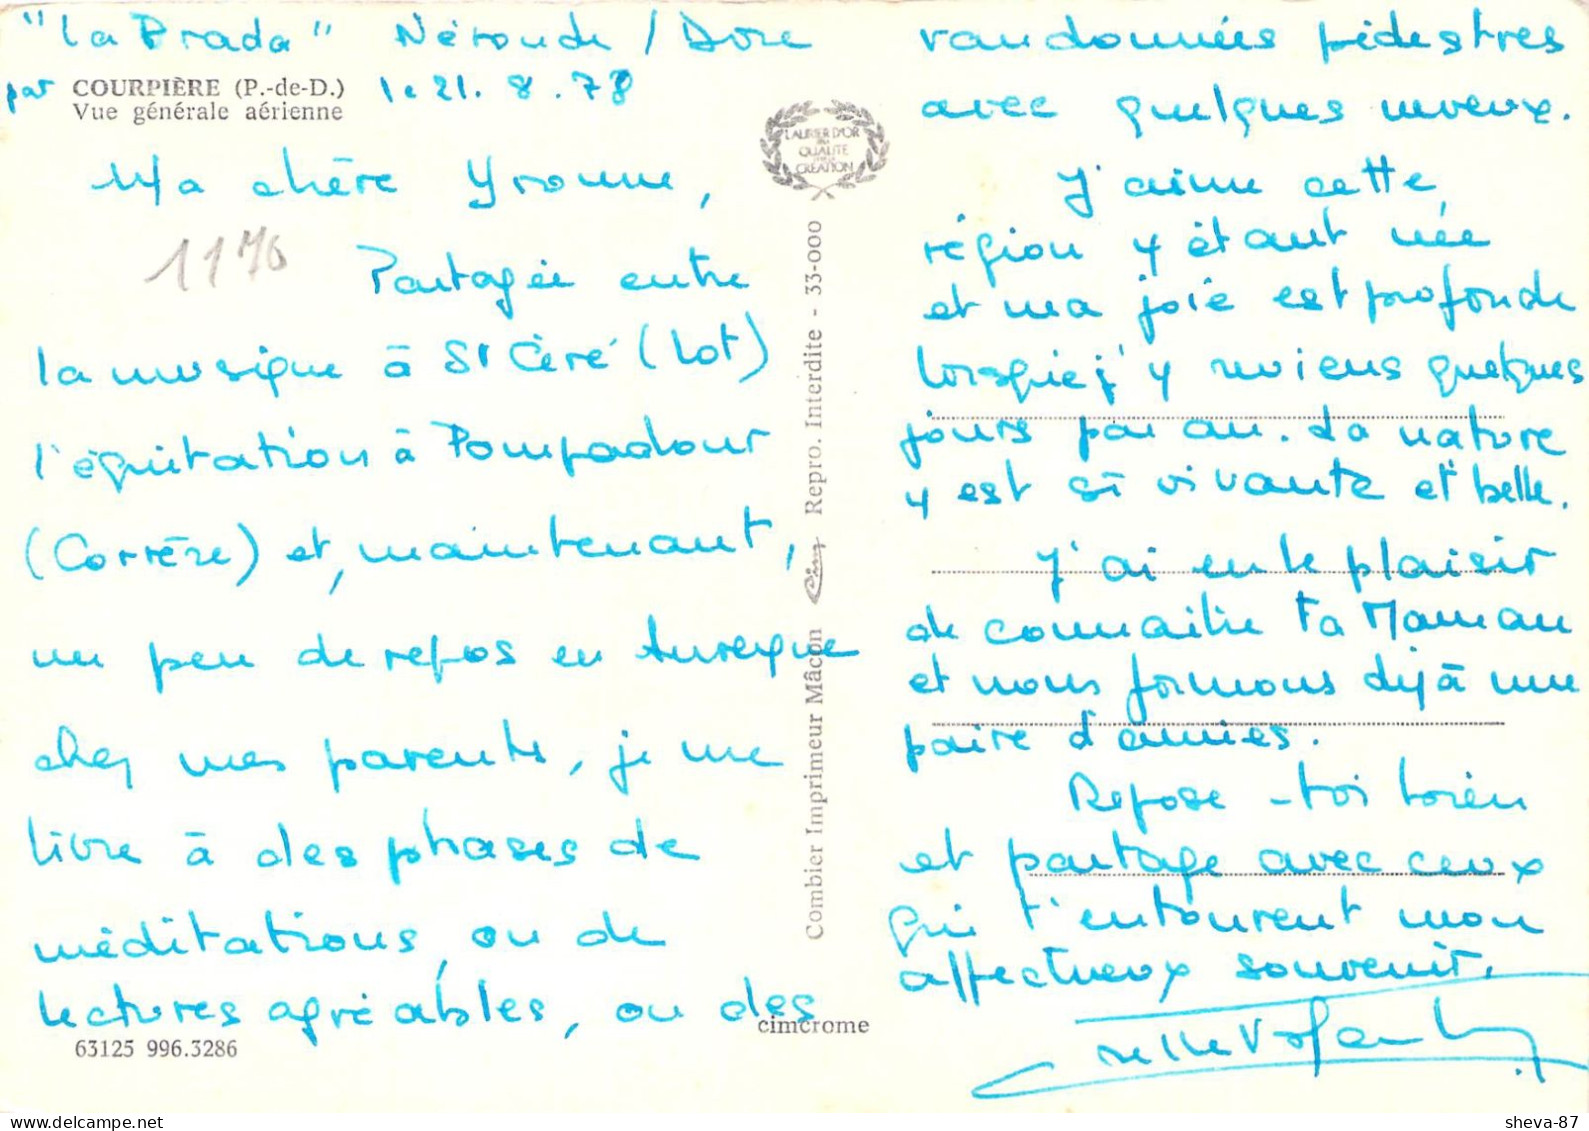 "La Prada" Néronde / Dore
par COURPIÈRE (P.-de-D.) le 21. 8. 78
Vue générale aérienne
Ma chère Yvonne,
1176
Partagée entre
la musique à St Céré (Lot)
l'équitation à Pompadour
(Corrèze) et, maintenant,
un peu de repos en Auvergne
chez mes parents, je me
livre à des phases de
méditations, ou de
lectures agréables, ou des
63125 996.3286
LAURIER D'OR
QUALITÉ
CRÉATION
Combier Imprimeur Mâcon Cim Repro. Interdite - 33-000
cimcrome
randonnées pédestres
avec quelques neveux.
J'aime cette
région y étant née
et ma joie est profonde
lorsque j'y reviens quelques
jours par an. La nature
y est si vivante et belle.
J'ai eu le plaisir
de connaître ta Maman
et nous formons déjà une
paire d'amies.
Repose-toi bien
et partage avec ceux
qui t'entourent mon
affectueux souvenir.
sheva-87